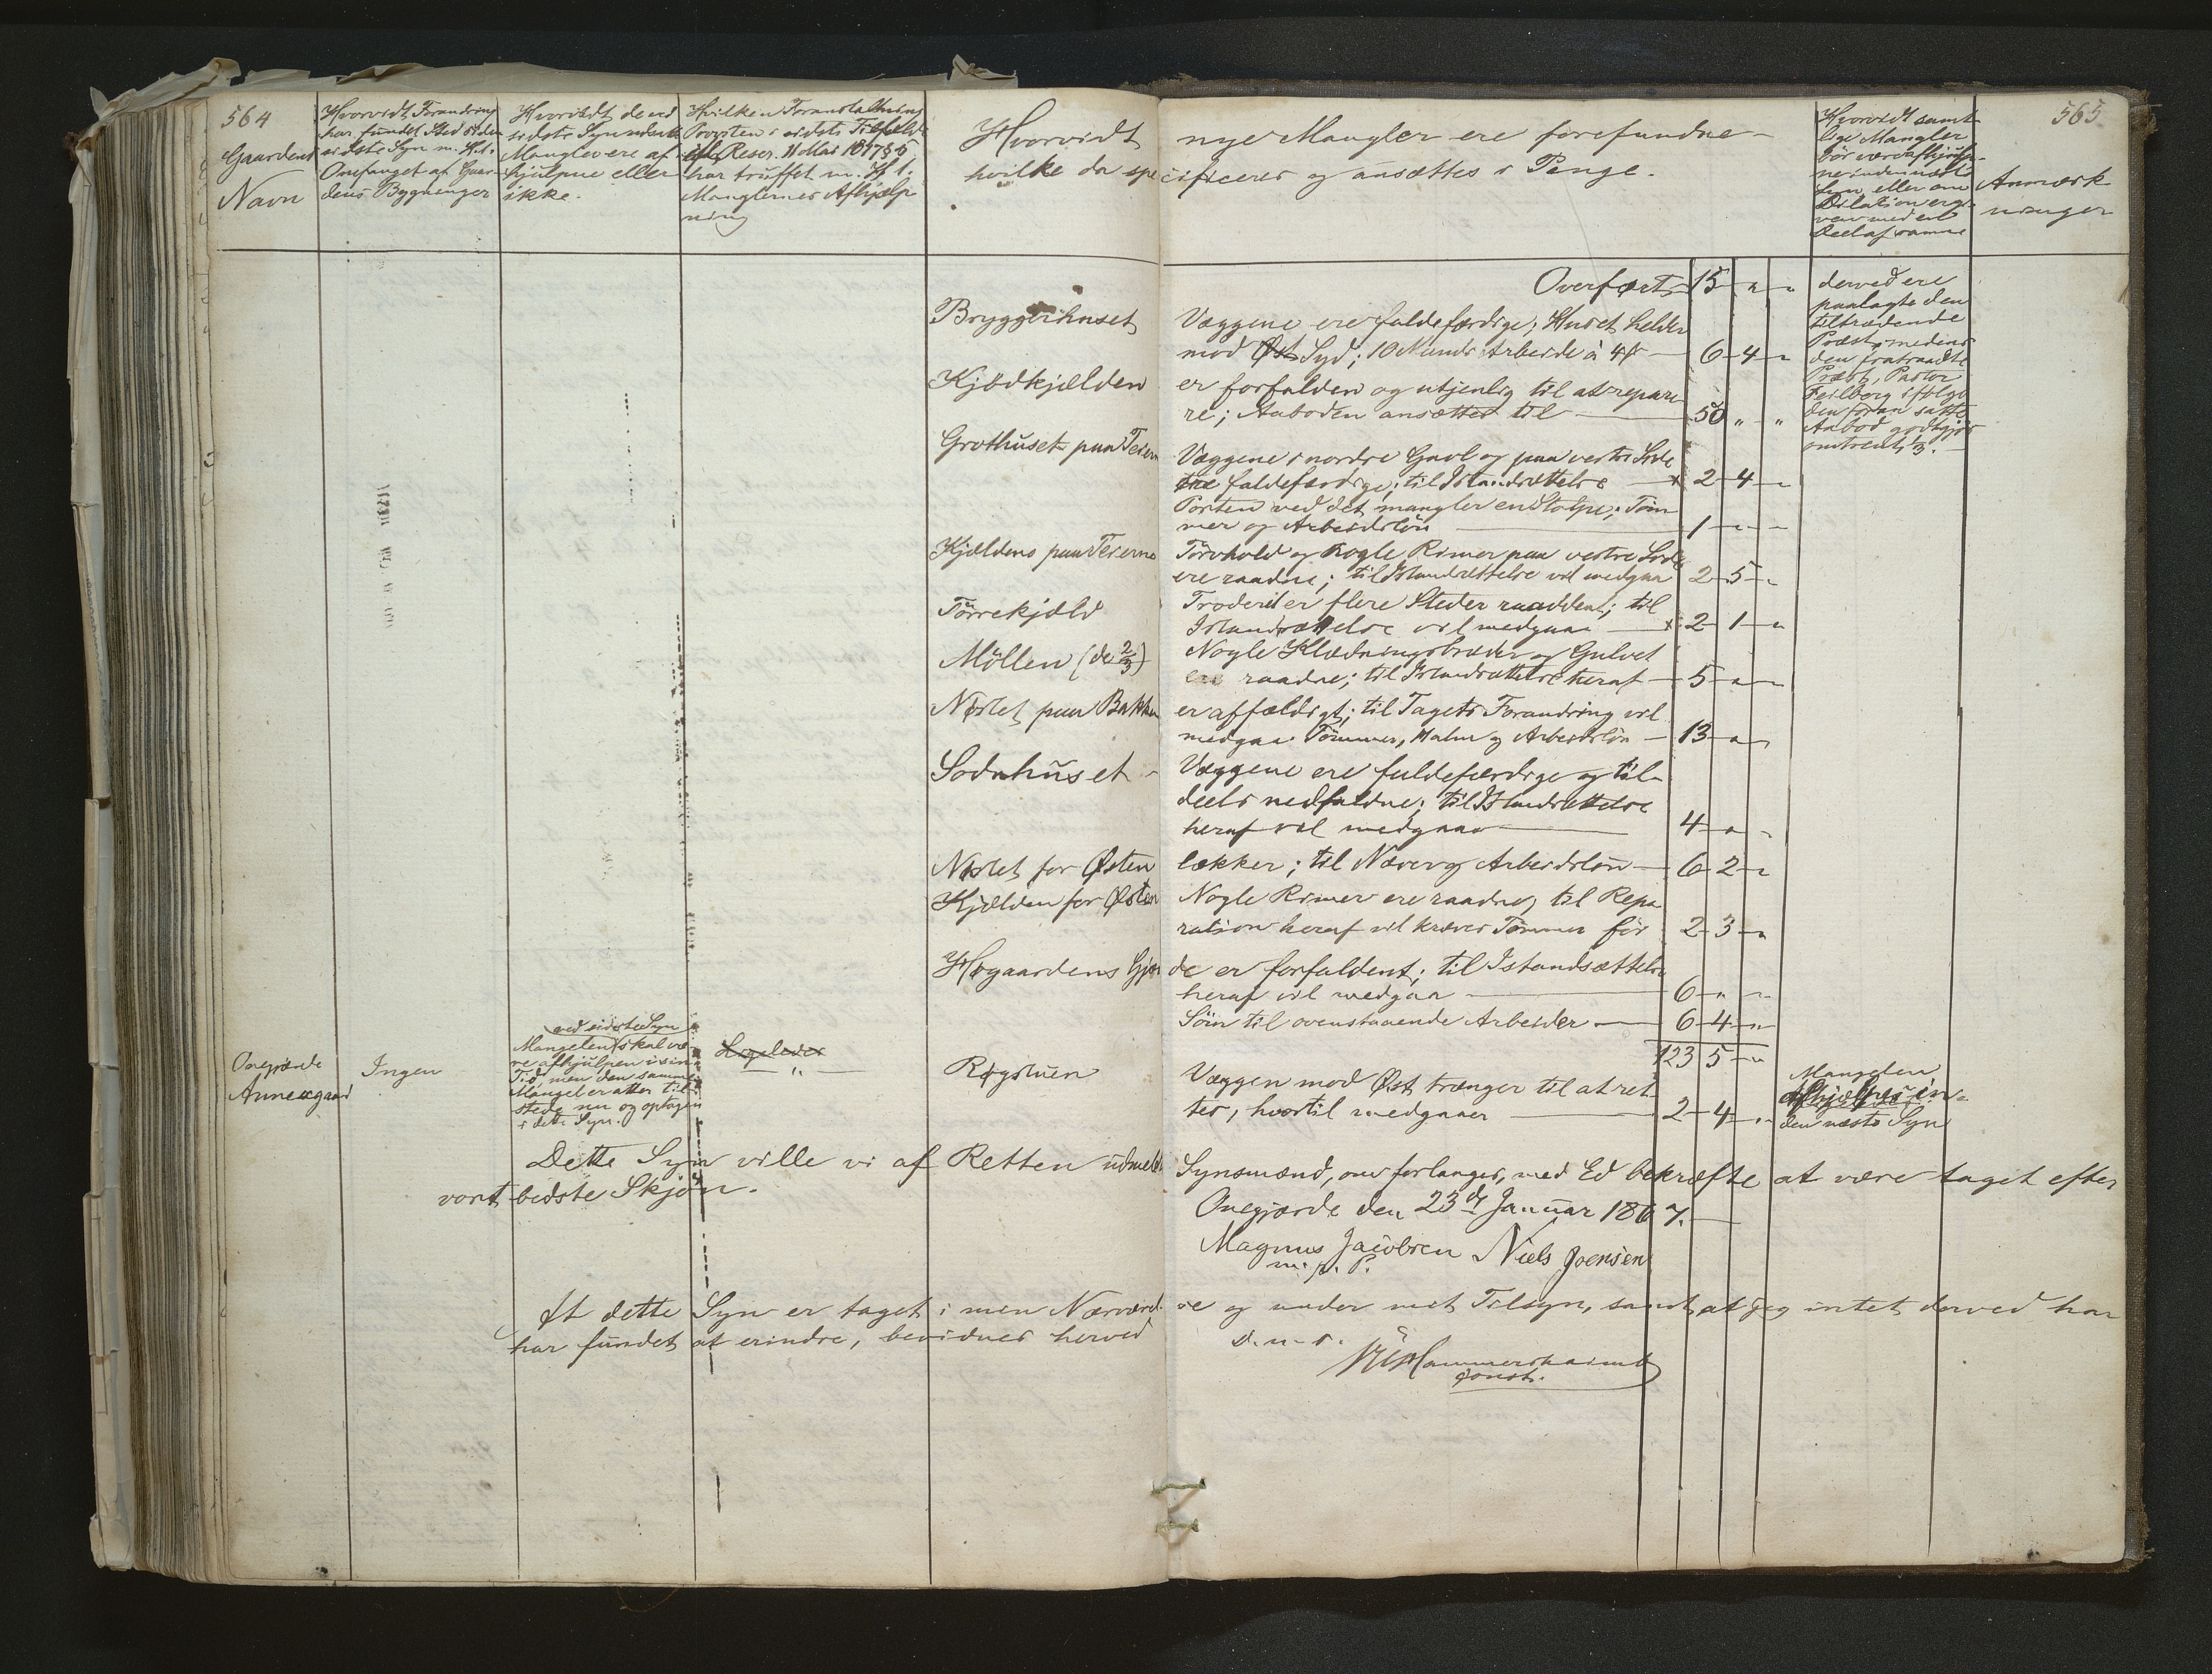 564
Gaardens
Navn
Hvorvidt Forandring
har fundet Sted siden
sidste Syn m. H. t.
Omfanget af Gaar-
dens Bygninger
Hvorvidt de ved
sidste Syn
Mangler ere af-
hjulpne eller
ikke.
Hvilken Foranstaltning
Provsten i sidste Tilfælde
efter Reser. 11 Mai 1877 § 5
har truffet m. H. t.
Manglernes Afhjælp
ning
Hvorvidt nye Mangler ere forefundne -
hvilke da specificeres og ansættes i Penge.
Hvorvidt samt-
lige Mangler
bör være afhjulp-
ne inden næste
Syn, eller om
Dilation er gi-
ven med en
Deel af samme
Anmærk
ninger
565
Overført 15 " "
Bryggerhuset Væggene ere faldefærdige; Huset helder
mod Øst Syd; 10 Mands Arbeide à 4 6 4 "
Kjödkjælden er forfalden og utjenlig til at repare-
re; Aaboden ansættes til 50 " "
Grothuset paa Teierne Væggene i nordre Gavl og paa vestre Side
ere faldefærdige; til Istandsættelse 2 4 "
Porten ved det mangler en Stolpe; Töm
mer og Arbeidslön 1 " "
Kjælderen paa Teierne Törvhold og nogle Rimer paa vestre Side
ere raadne; til Istandsættelse vil medgaa 2 5 "
Törrekjæld Troderne er flere Steder raadden; til
Istandsættelse vil medgaae 2 1 "
Möllen (de 2/3) Nogle Klædningsbræder og Gulvet
ere raadne; til Istandsættelse heraf 5 " "
Nøstet paa Bakken er affældigt; til Tagets Forandring vil
medgaa Tömmer, Halm og Arbeidslön 13 " "
Sodnhuset Væggene ere faldefærdige og til-
deels nedfaldne; til Istandsættelse
heraf vil medgaae 4 " "
Nøstet for Østen lækker; til Næver og Arbeidslön 6 2 "
Kjælden for Østen Nogle Rimer ere raadne; til Repa
ration heraf vil kræves Tömmer för 2 3 "
Hegaardens Gjærde er forfaldent; til Istandsættelse
heraf vil medgaa 6 " "
Söm til ovenstaaende Arbeider 6 4 "
123 5 "
derved ere
paalagte den
tiltrædende
Præst, medens
den fratraadte
Præst, Pastor
Feilberg ifölge
den foran satte
Aabod godtgjör
omtrent 1/3.
Onegjærde
Annexgaard
Ingen
ved sidste Syn
Mangelen skal væ-
re afhjulpen i sin
Tid, men den samme
Mangel er atter til-
stede nu og optagen
i dette Syn.
"
Røgstuen Væggen mod Øst trænger til at ret-
tes, hvortil medgaaer 2 4 "
Mangelen
afhjælpes in-
den næste Syn
Dette Syn ville vi af Retten udmeldte Synsmænd, om forlanges, med Ed bekræfte at være taget efter
vort bedste Skjøn.
Onegjærde den 23de Januar 1867.
Magnus Jacobsen Niels Joensen
m. p. P.
At dette Syn er taget i min Nærværelse og under mit Tilsyn, samt at jeg intet derved har
har fundet at erindre, bevidnes herved
d. u. s.
VU Hammershaimb
const.